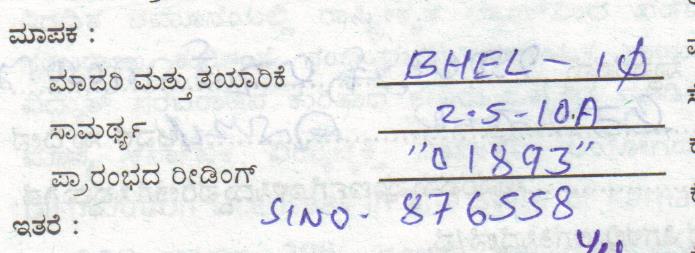 ಮಾಪಕ :
ಮಾದರಿ ಮತ್ತು ತಯಾರಿಕೆ BHEL - 1φ
ಸಾಮರ್ಥ್ಯ 2.5-10.A
ಪ್ರಾರಂಭದ ರೀಡಿಂಗ್ "01893"
ಇತರೆ : SINO- 876558